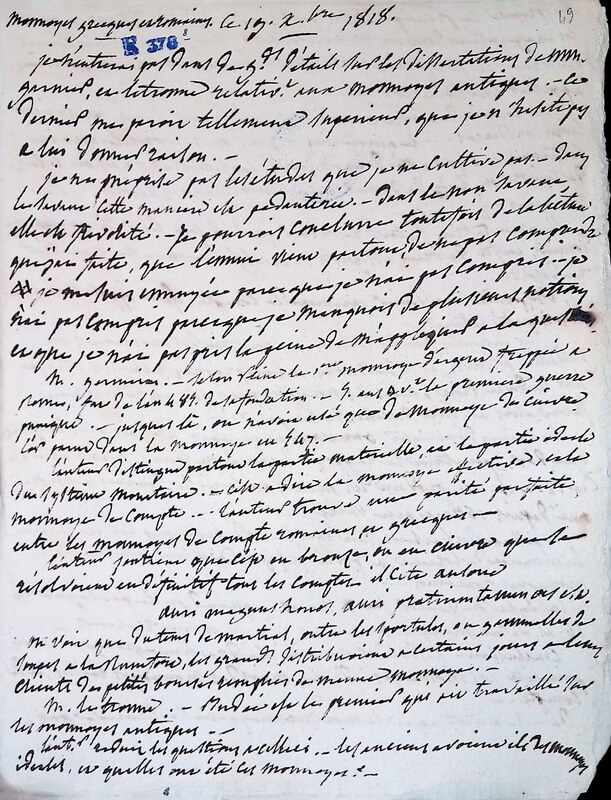 monnoyes grecques et romaines. Ce 19. Xbre 1818.
49
R 378
8
je n'entrerai pas dans de gds détails sur les dissertations de mm.
garnier, et letronne relativt aux monnoyes antiques. - Ce
dernier me paroit tellement supérieur, que je n'hésite pas
a lui donner raison. -
je ne méprise pas les études que je ne cultive pas. - dans
le savant cette maniere est pédanterie. - dans le non savant
elle est frivolité. - Je pourrois conclurre toutefois de la lecture
que j'ai faite, que l'ennui vient partout de ne pas comprendre
je me suis ennuyée parce que je n'ai pas compris - je
n'ai pas compris parce que je manquois de plusieurs notions
et que je n'ai pas pris la peine de m'appliquer a la question
M. garnier. - Selon Pline la 1ere monnoye d'argent frappée a
rome, fut de l'an 485. de sa fondation. - 5. ans avt la premiere guerre
punique. - jusques là, on n'avoit usé que de monnoye de cuivre
L'or parut dans la monnoye en 547. -
L'auteur distingue partout la partie materielle, et la partie idéale
du système monetaire. - c'est a dire la monnoye effective, et la
monnoye de compte. - l'auteur trouve une parité parfaite,
entre les monnoyes de compte romaines et grecques -
L'auteur soutient que c'est en bronze, ou en cuivre que se
resolvoient en definitif tous les comptes il cite ausone
auri magnus honos, auri
on voit que du tems de martial, outre les sportules, ou gamelles de
soupes a la Rumfort, les grands distribuoient a certains jours a leurs
clients des petites bourses remplies de menue monnoye. -
M. letronne. - Budée est le premier qui ait travaillé sur
les monnoyes antiques. -
L'autr. reduit les questions a celle ci. - les anciens avoient ils des monnoyes
idéales, et quelles ont été ces monnoyes? -